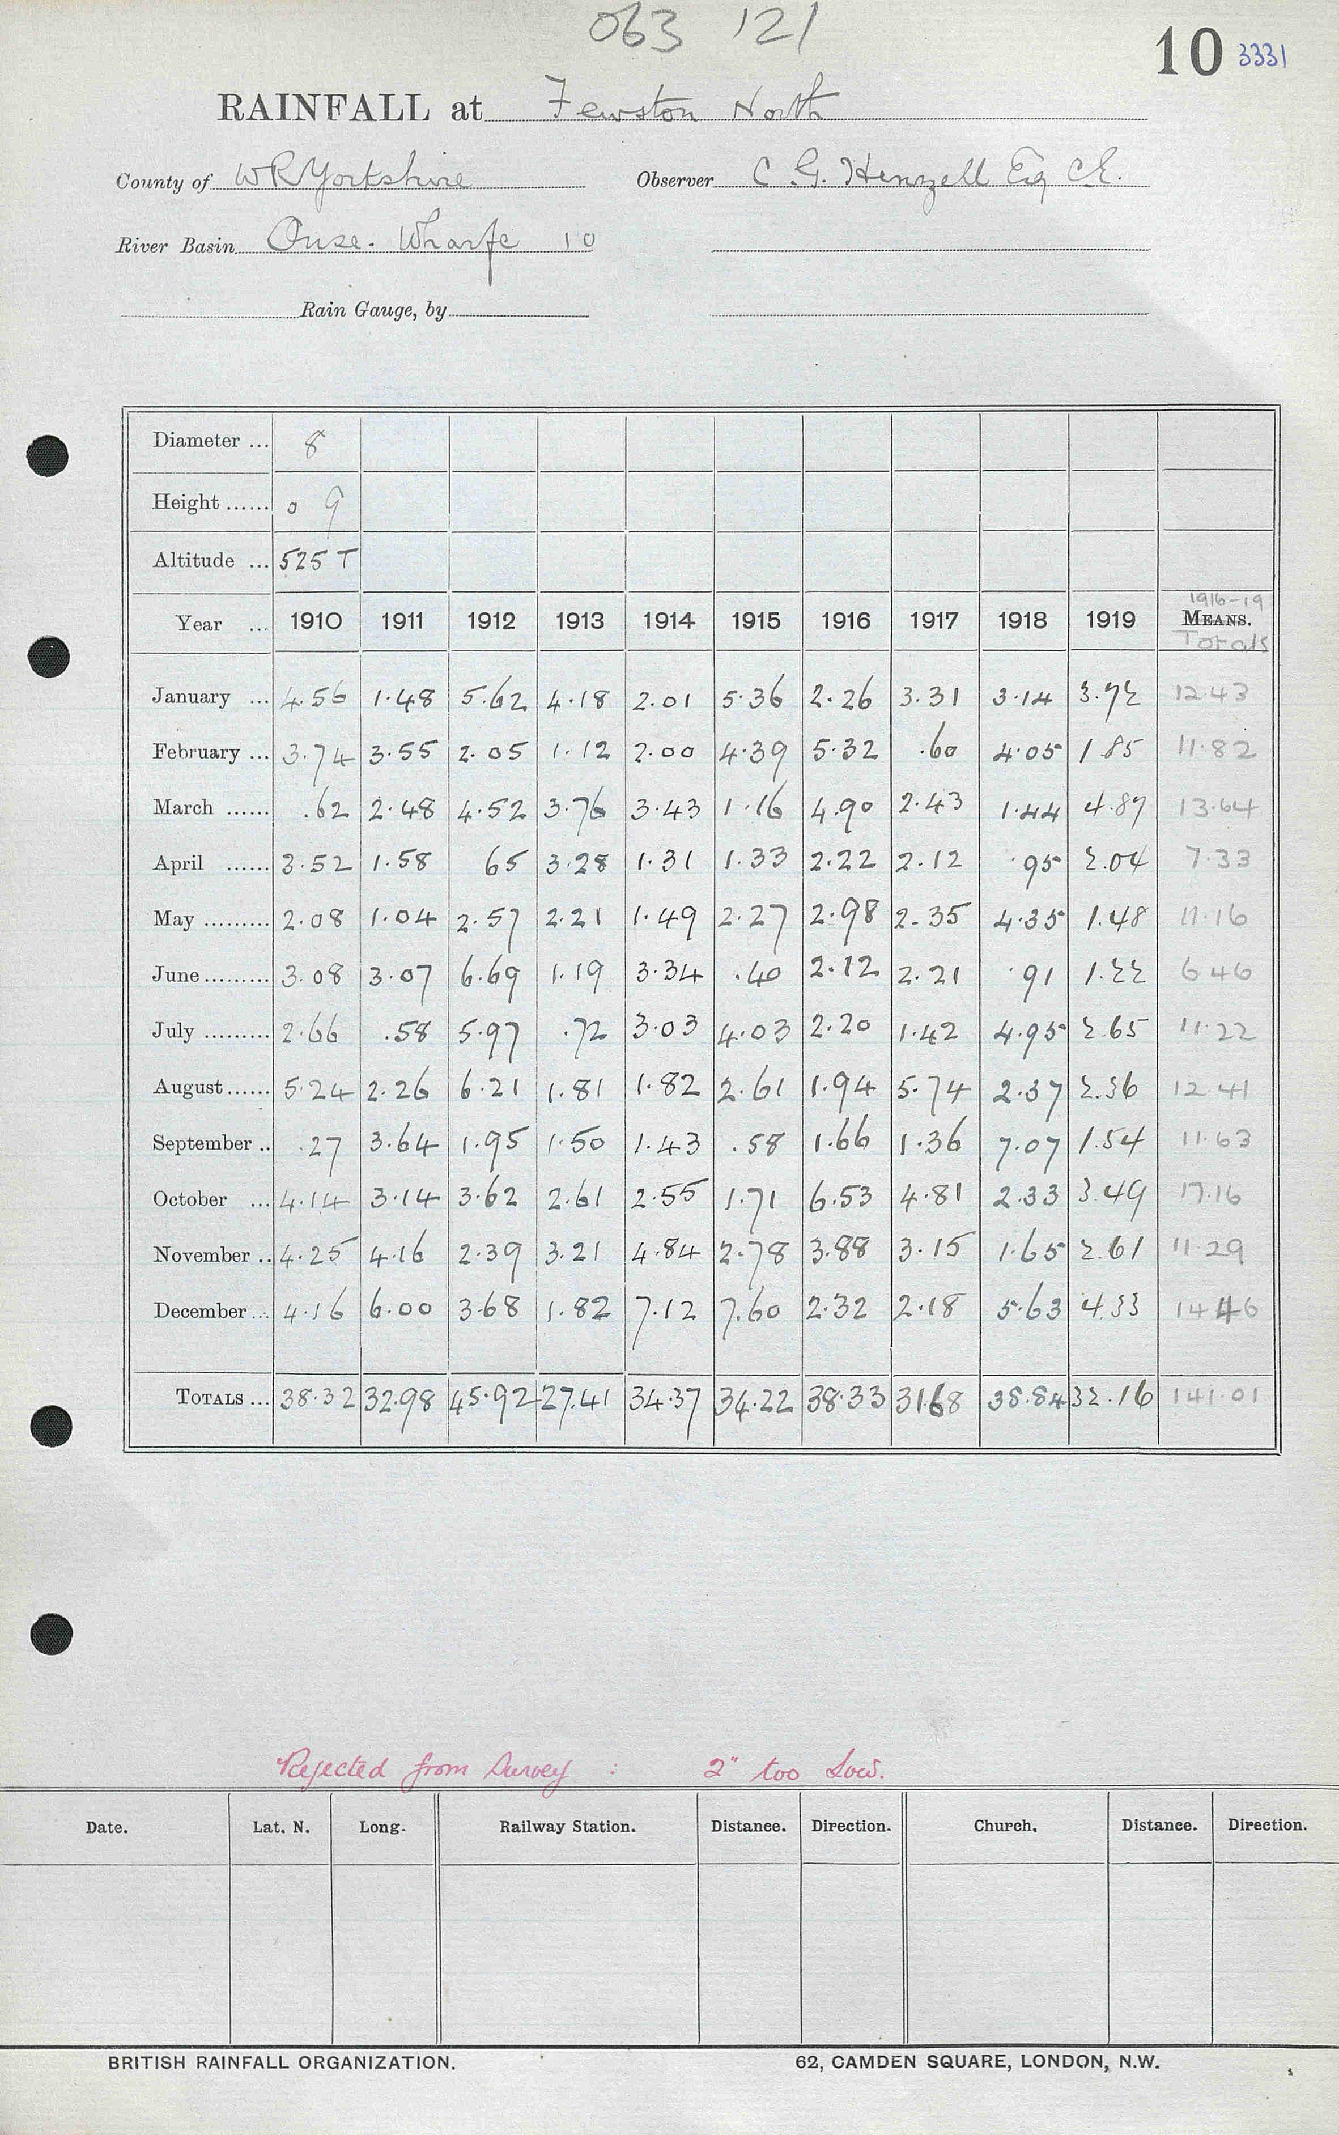 063 121
10 3331
RAINFALL at Fewston North
County of WRYorkshire Observer C. G. Henzell Esq CE.
River Basin Ouse. Wharfe 10
Rain Gauge, by
Diameter ... 8
Height ...... 0 9
Altitude ... 525 T
1916-19
Year ... 1910 1911 1912 1913 1914 1915 1916 1917 1918 1919 MEANS.
Totals
January ... 4.56 1.48 5.62 4.18 2.01 5.36 2.26 3.31 3.14 3.72 12.43
February ... 3.74 3.55 2.05 1.12 2.00 4.39 5.32 .60 4.05 1.85 11.82
March ...... .62 2.48 4.52 3.76 3.43 1.16 4.90 2.43 1.44 4.87 13.64
April ...... 3.52 1.58 65 3.28 1.31 1.33 2.22 2.12 .95 2.04 7.33
May ......... 2.08 1.04 2.57 2.21 1.49 2.27 2.98 2.35 4.35 1.48 11.16
June ......... 3.08 3.07 6.69 1.19 3.34 .40 2.12 2.21 .91 1.22 6 46
July ......... 2.66 .58 5.97 .72 3.03 4.03 2.20 1.42 4.95 2.65 11.22
August ...... 5.24 2.26 6.21 1.81 1.82 2.61 1.94 5.74 2.37 2.36 12.41
September .. .27 3.64 1.95 1.50 1.43 .58 1.66 1.36 7.07 1.54 11.63
October ... 4.14 3.14 3.62 2.61 2.55 1.71 6.53 4.81 2.33 3.49 17.16
November .. 4.25 4.16 2.39 3.21 4.84 2.78 3.88 3.15 1.65 2.61 11.29
December ... 4.16 6.00 3.68 1.82 7.12 7.60 2.32 2.18 5.63 4.33 14 46
TOTALS ... 38.32 32.98 45.92 27.41 34.37 34.22 38.33 31.68 38.84 32.16 141.01
Rejected from Survey : 2" too low.
Date. Lat. N. Long. Railway Station. Distance. Direction. Church. Distance. Direction.
BRITISH RAINFALL ORGANIZATION. 62, CAMDEN SQUARE, LONDON, N.W.